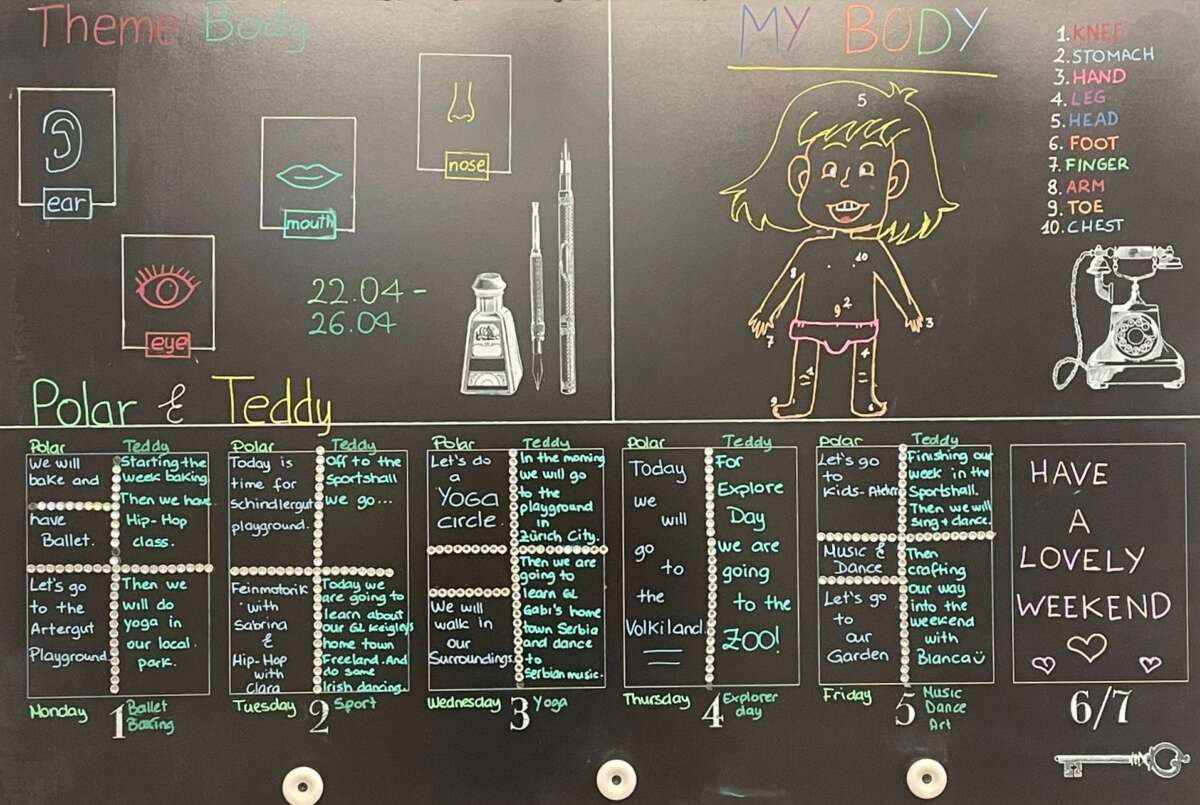 Theme Body
ear
mouth
nose
eye
22.04 -
26.04
MY BODY
1. KNEE
2. STOMACH
3. HAND
4. LEG
5. HEAD
6. FOOT
7. FINGER
8. ARM
9. TOE
10. CHEST
5
8
10
2
9
3
7
4
1
9
6
Polar & Teddy
Polar
We will
bake and
have
Ballet.
Let's go
to the
Artergut
Playground
Teddy
Starting the
week baking
Then we have
Hip-Hop
class.
Then we
will do
yoga in
our local
park.
Monday
1
Ballet
Baking
Polar
Today is
time for
Schindlergut
playground.
Feinmotorik
with
Sabrina
&
Hip-Hop
with
Clara
Teddy
Off to the
Sportshall
we go...
Today we
are going to
learn about
our GL Keigleys
home town
Freeland. And
do some
Irish dancing.
Tuesday
2
Sport
Polar
Let's do
a
YOGA
circle.
We will
walk in
our
Surroundings
Teddy
In the morning
we will go
to the
playground
in
Zürich City.
Then we are
going to
learn GL
Gabi's home
town Serbia
and dance
to
Serbian music.
Wednesday
3
Yoga
Polar
Today
we
will
go
to
the
Volkiland
Teddy
For
Explore
Day
we are
going
to the
ZOO!
Thursday
4
Explorer
day
Polar
Let's go
to
Kids-Atelier
Music &
Dance
Let's go
to
our
Garden
Teddy
Finishing our
week in the
Sportshall.
Then we will
sing + dance.
Then
crafting
our way
into the
weekend
with
Bianca
Friday
5
Music
Dance
Art
HAVE
A
LOVELY
WEEKEND
6/7